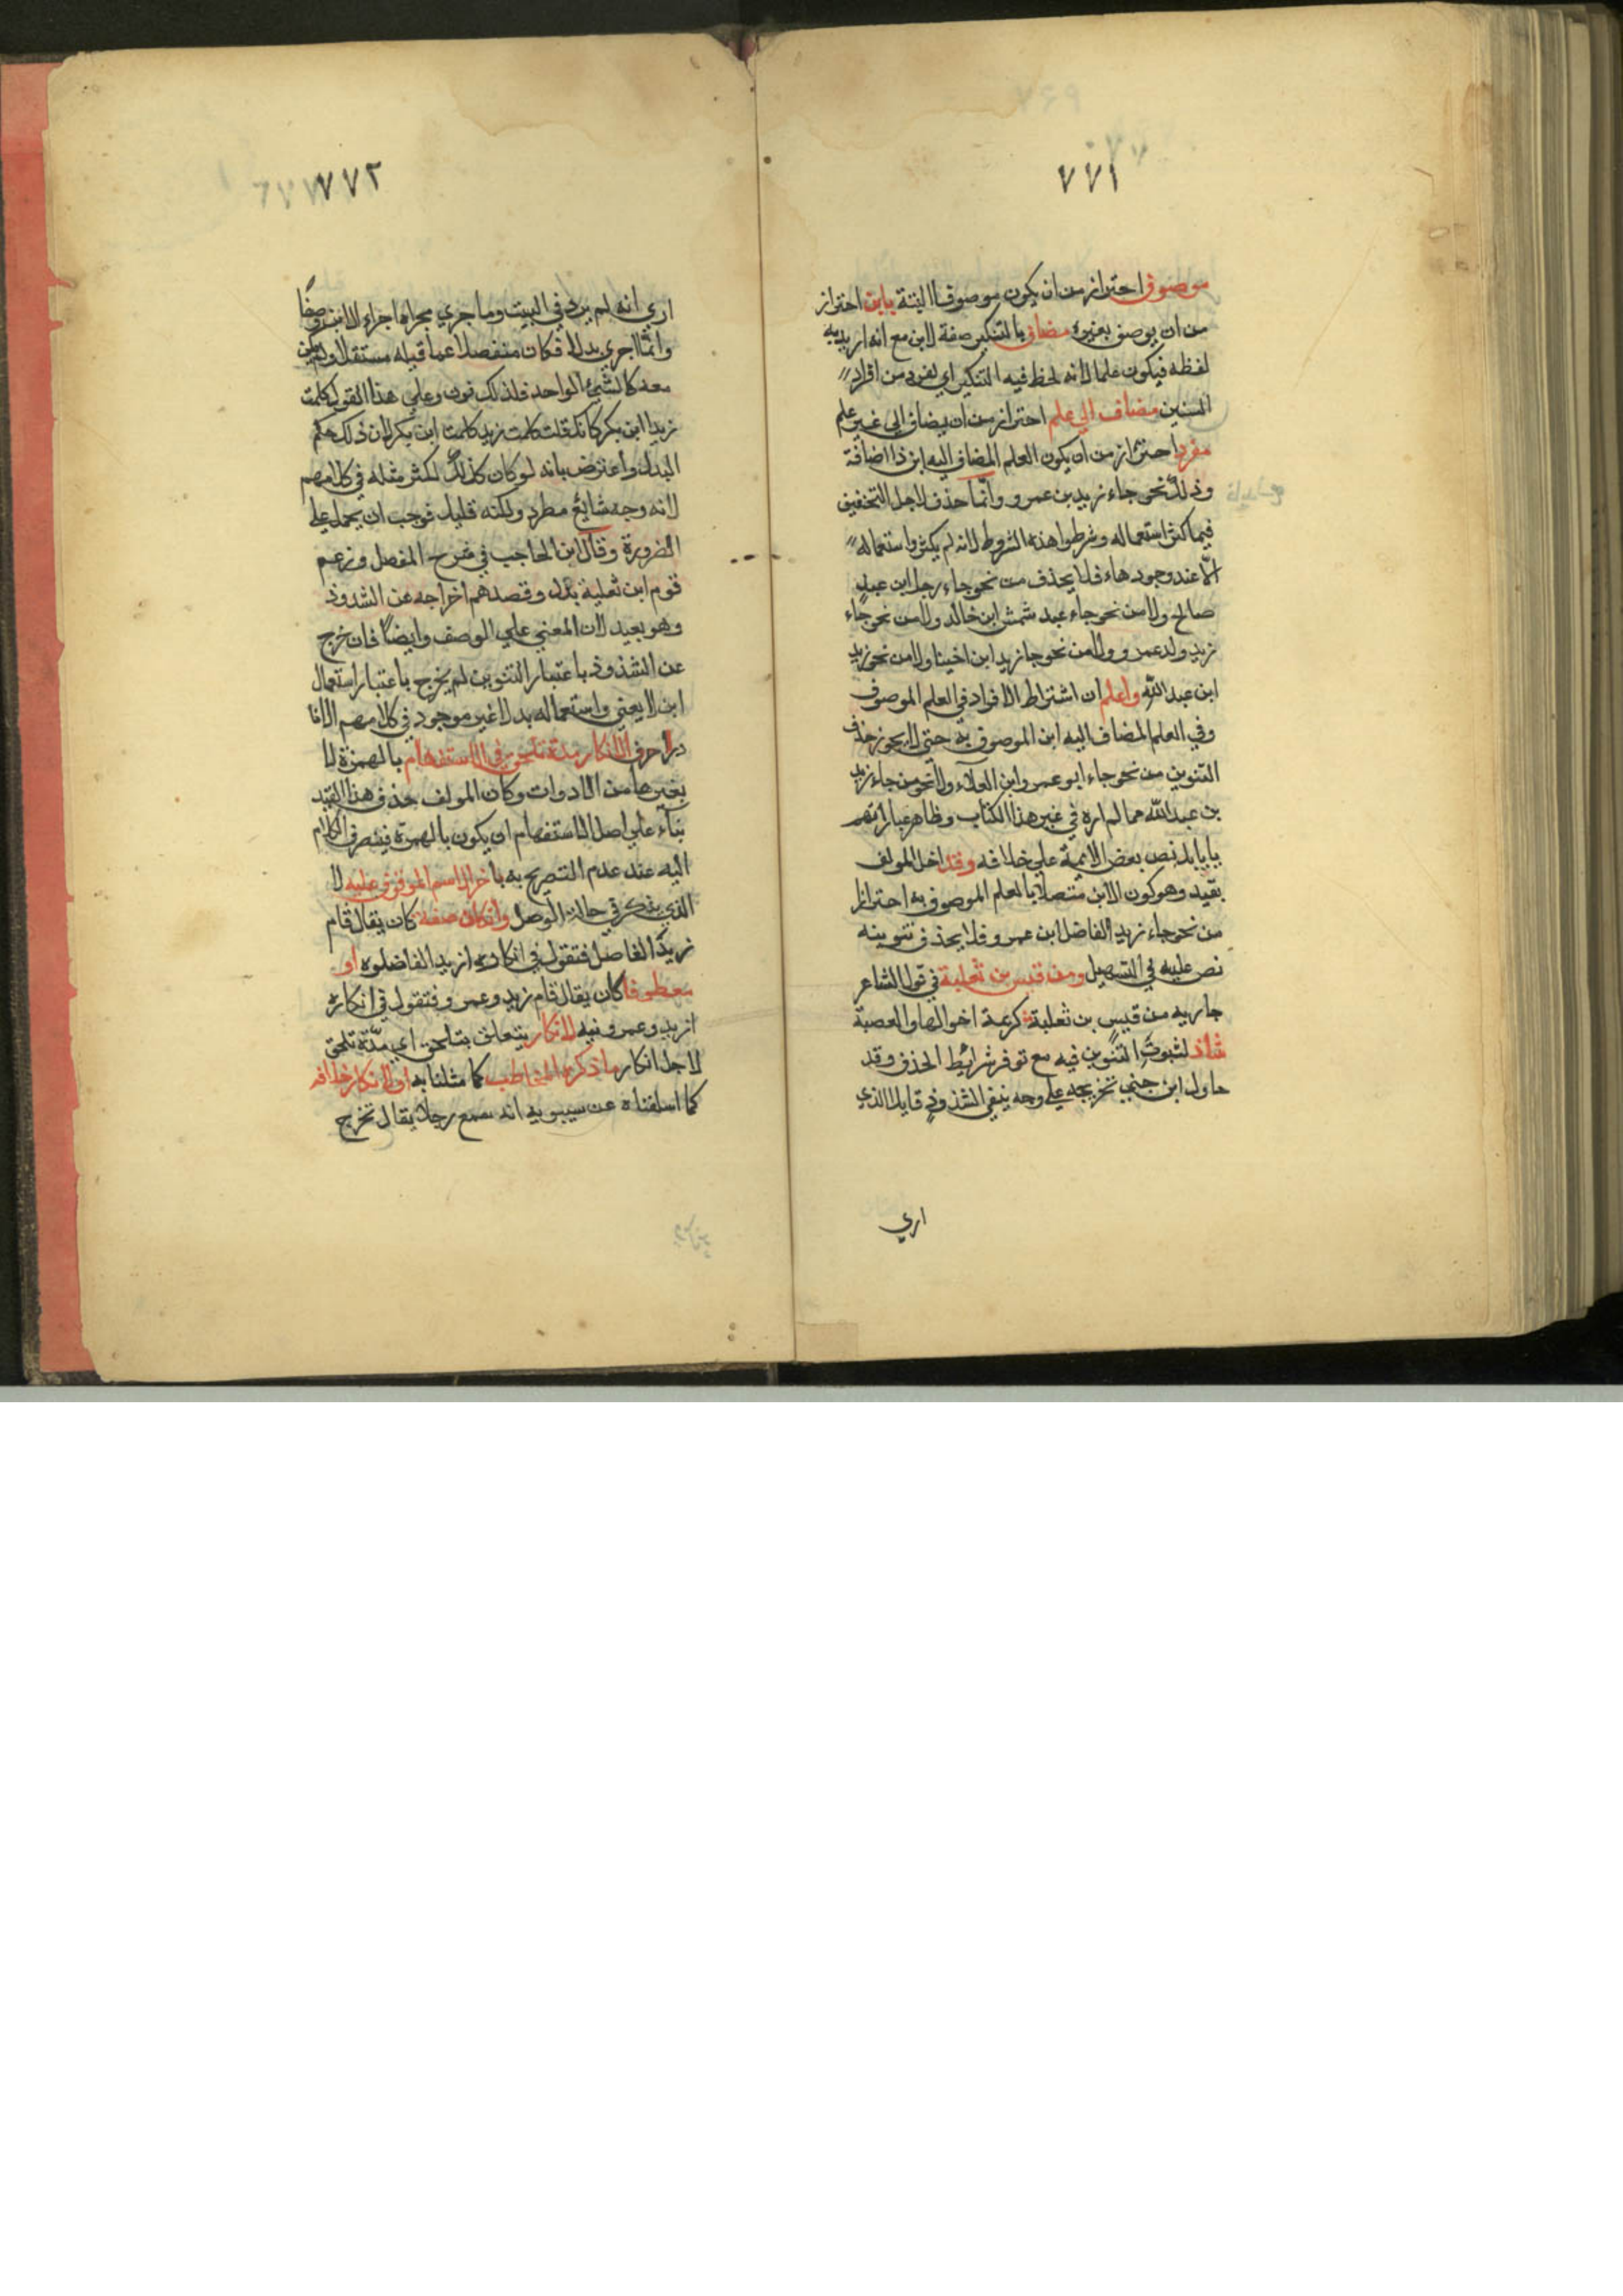 ٧٧١
موصوف احتراز من ان يكون موصوفا البتة بابن احتراز
من ان يوصف بغيره مضاف بالتنكير صفة لابن مع انه اريد به
لفظه فيكون علما لانه لحظ فيه التنكير اي لفرد من افراد
مضاف الي علم احتراز من ان يضاف الي غير علم
مفرد احتراز من ان يكون العلم المضاف اليه ابن ذا اضافة
وذلك نحو جاء زيد بن عمرو وانما حذف لاجل التخفيف
فيما كثر استعماله وشرطوا هذه الشروط لانه لم يكثر استعماله
الا عند وجودها فلا يحذف من نحو جاء رجل ابن عبد
صالح ولا من نحو جاء عبد شمش ابن خالد ولا من نحو جاء
زيد ولد عمرو ولا من نحو جا زيد ابن اخينا ولا من نحو زيد
ابن عبد الله واعلم ان اشتراط الافراد في العلم الموصوف
وفي العلم المضاف اليه ابن الموصوف به حتي لا يجوز حذف
التنوين من نحو جاء ابو عمرو ابن العلاء ولا نحو من جاء زيد
بن عبد الله مما لم اره في غير هذا الكتاب وظاهر عباراتهم
يابا بل نص بعض الايمة علي خلافه وقد اخل المولف
بقيد وهو كون الابن متصلا بالعلم الموصوف به احتراز
من نحو جاء زيد الفاضل ابن عمرو فلا يحذف تنوينه
نص عليه في التسهيل ومن قيس بن ثعلبة في قول الشاعر
جاريه من قيس بن ثعلبة كرعة اخوالها والعصبة
شاذ لثبوت التنوين فيه مع توفر شرائط الحذف وقد
حاول ابن جني تخريجه علي وجه ينفي الشذوذ قايلا الذي
اري
٧٧٢
اري انه لم يرد في البيت وما جري مجراه اجراء الابن وصفا
وانما اجري بدلا فكان منفصلا عما قبله مستقلا ولم يكن
معه كالشيء الواحد فلذلك نون وعلي هذا القول كلمت
زيدا ابن بكر كانك قلت كلمت زيدا كلمت ابن بكر لان ذلك حكم
البدل واعترض بانه لو كان كذلك لكثر مثله في كلامهم
لانه وجه شايع مطرد ولكنه قليل فوجب ان يحمل علي
الضرورة وقال ابن الحاجب في شرح المفصل وزعم
قوم ابن ثعلبة بدل وقصدهم اخراجه عن الشذوذ
وهو بعيد لان المعني علي الوصف وايضا فان خرج
عن الشذوذ باعتبار التنوين لم يخرج باعتبار استعمال
ابن لا يعني واستعماله بدلا غير موجود في كلامهم الانا
درا حرف الانكار مدة تلحق في الاستفهام بالهمزة لا
بغيرها من الادوات وكان المولف حذف هذا القيد
بناء علي اصل الاستفهام ان يكون بالهمزة فينصرف الكلام
اليه عند عدم التصريح به باخر الاسم الموقوف عليه لا
الذي يذكر في حالة الوصل وان كان صفة كان يقال قام
زيد الفاضل فتقول في انكاره ازيد الفاضلوه او
معطوفا كان يقال قام زيد وعمرو فتقول في انكاره
ازيد وعمرونيه لانكار يتعلق بتلحق اي مدة تلحق
لاجل انكار ما ذكره المخاطب كما مثلنا به او لانكار خلافه
كما اسلفناه عن سيبويه انه سمع رجلا يقال تخرج